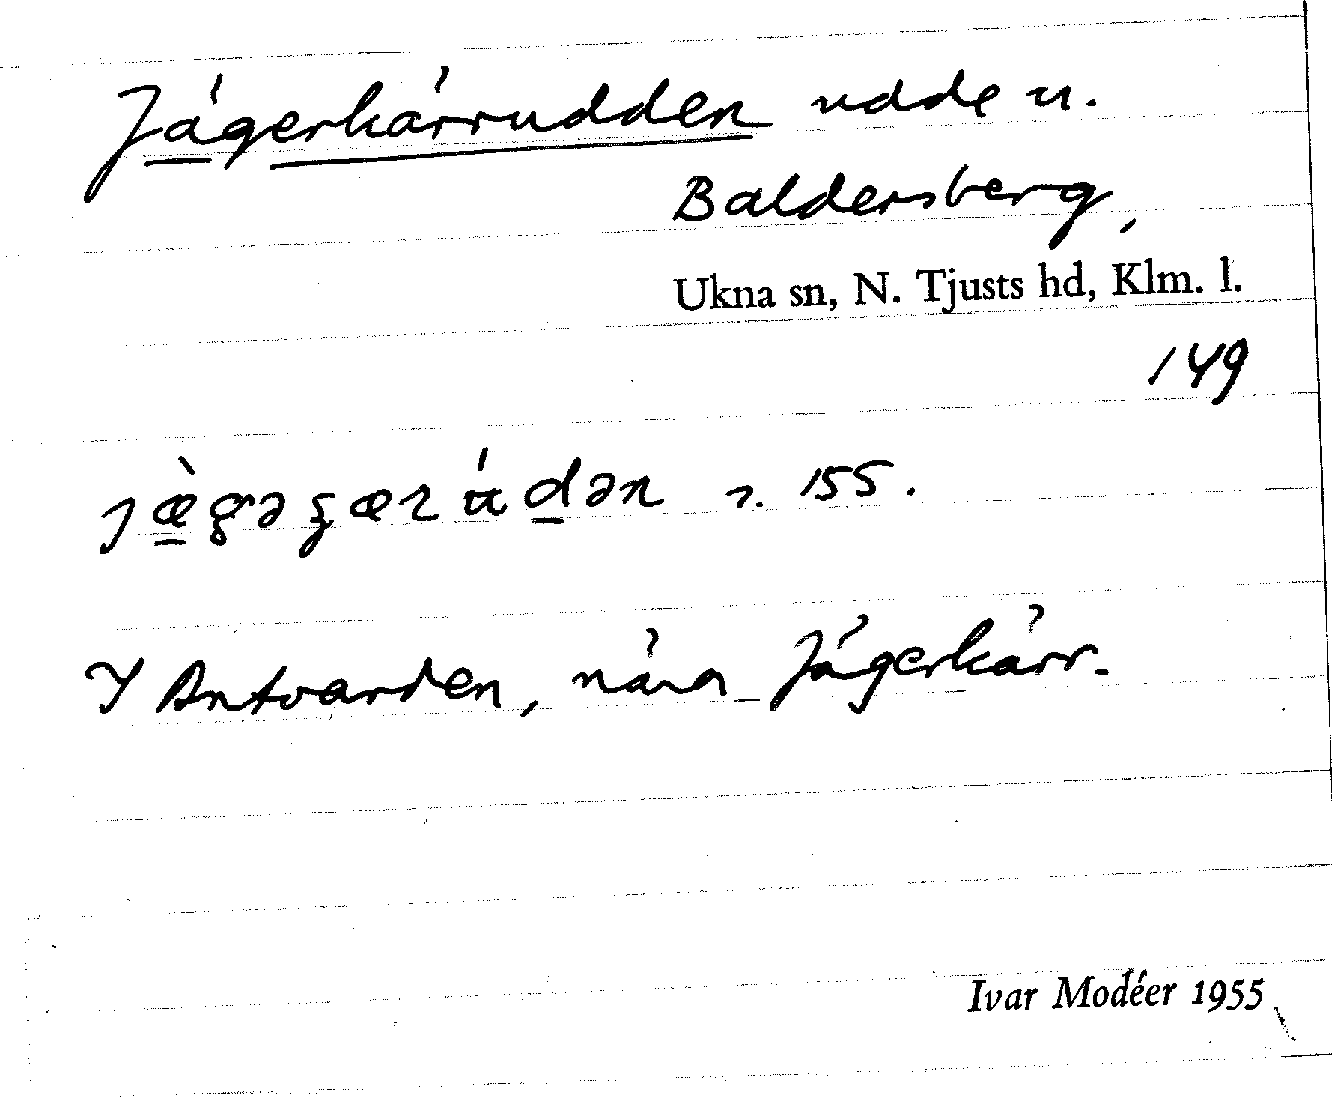 Jägerkärrudden udde u.
Baldersberg,
Ukna sn, N. Tjusts hd, Klm. l.
149
155.
I Antvarden, nära Jägerkärr.
Ivar Modéer 1955